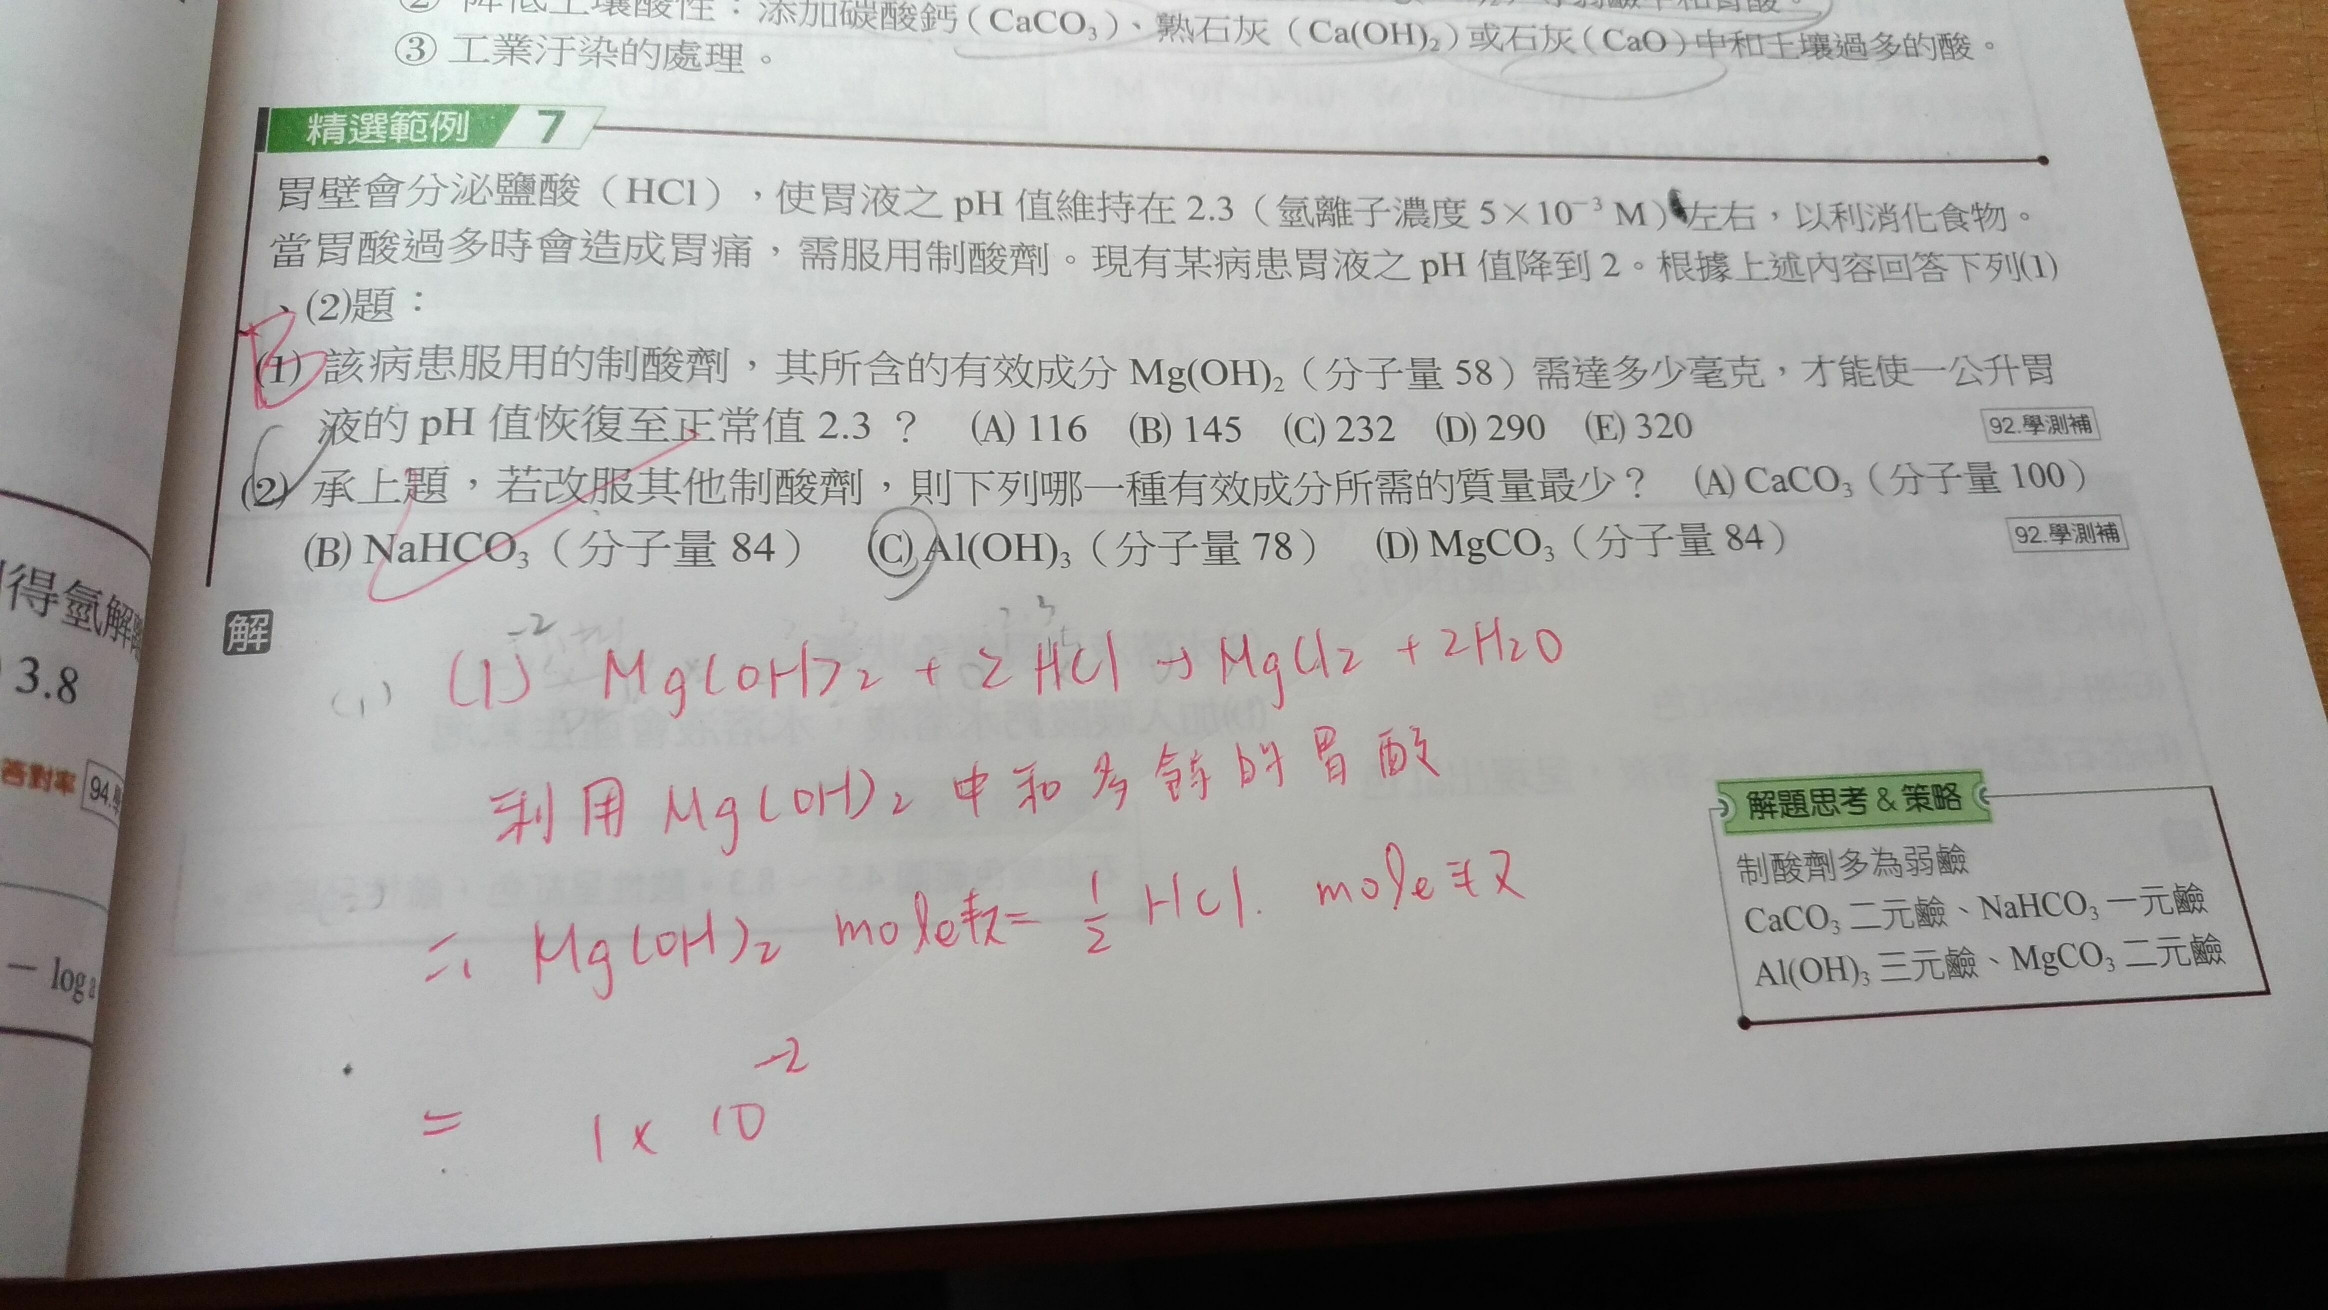 ② 降低土壤酸性：添加碳酸鈣（CaCO₃）、熟石灰（Ca(OH)₂）或石灰（CaO）中和土壤過多的酸。
③ 工業汙染的處理。
精選範例 7
胃壁會分泌鹽酸（HCl），使胃液之 pH 值維持在 2.3（氫離子濃度 5×10⁻³ M）左右，以利消化食物。
當胃酸過多時會造成胃痛，需服用制酸劑。現有某病患胃液之 pH 值降到 2。根據上述內容回答下列(1)
、(2)題：
B
(1) 該病患服用的制酸劑，其所含的有效成分 Mg(OH)₂（分子量 58）需達多少毫克，才能使一公升胃
液的 pH 值恢復至正常值 2.3 ？ (A) 116 (B) 145 (C) 232 (D) 290 (E) 320 92.學測補
(2) 承上題，若改服其他制酸劑，則下列哪一種有效成分所需的質量最少？ (A) CaCO₃（分子量 100）
(B) NaHCO₃（分子量 84） (C) Al(OH)₃（分子量 78） (D) MgCO₃（分子量 84） 92.學測補
解
(1) (1) Mg(OH)₂ + 2HCl → MgCl₂ + 2H₂O
利用 Mg(OH)₂ 中和多餘的胃酸
∴ Mg(OH)₂ mole數 = 1/2 HCl. mole數
= 1 × 10⁻²
解題思考 & 策略
制酸劑多為弱鹼
CaCO₃ 二元鹼、NaHCO₃ 一元鹼
Al(OH)₃ 三元鹼、MgCO₃ 二元鹼
得氫解
3.8
答對率 94.
— log